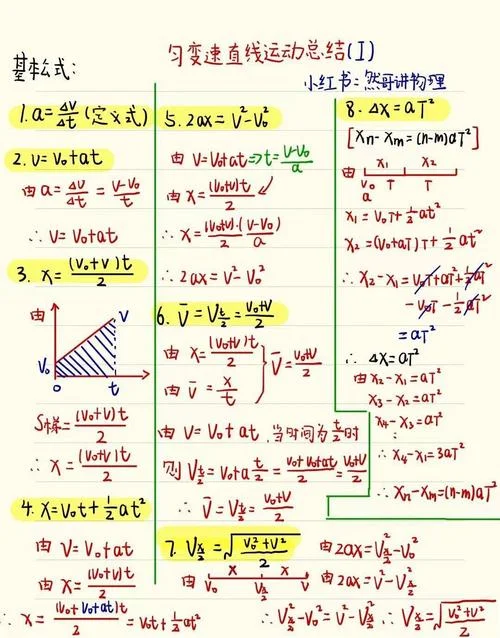 匀变速直线运动总结(I)
基本公式:
小红书:然哥讲物理
1. a=Δv/Δt (定义式)
2. v=v₀+at
由 a=Δv/Δt=(v-v₀)/t
∴ v=v₀+at
3. x=(v₀+v)t/2
由
v
v₀
0 t
S梯=(v₀+v)t/2
∴ x=(v₀+v)t/2
4. x=v₀t+½at²
由 v=v₀+at
由 x=(v₀+v)t/2
∴ x=(v₀+v₀+at)t/2=v₀t+½at²
5. 2ax=v²-v₀²
由 v=v₀+at⇒t=(v-v₀)/a
由 x=(v₀+v)t/2
∴ x=(v₀+v)/2·(v-v₀)/a
∴ 2ax=v²-v₀²
6. v̄=v_(t/2)=(v₀+v)/2
由 x=(v₀+v)t/2
由 v̄=x/t
} v̄=(v₀+v)/2
由 v=v₀+at,当时间为t/2时
则 v_(t/2)=v₀+a t/2=(v₀+v₀+at)/2=(v₀+v)/2
∴ v̄=v_(t/2)=(v₀+v)/2
7. v_(x/2)=√((v₀²+v²)/2)
由
x x
v₀ v_(x/2) v
由 2ax=v²_(x/2)-v₀²
由 2ax=v²-v²_(x/2)
∴ v²_(x/2)-v₀²=v²-v²_(x/2) ∴ v_(x/2)=√((v₀²+v²)/2)
8. Δx=aT²
[xn-xm=(n-m)aT²]
由
x₁ x₂
v₀ T T
a
x₁=v₀T+½aT²
x₂=(v₀+aT)T+½aT²
∴ x₂-x₁=v₀T+aT²+½aT²
-v₀T-½aT²
=aT²
∴ Δx=aT²
由 x₂-x₁=aT²
x₃-x₂=aT²
x₄-x₃=aT²
∴ x₄-x₁=3aT²
∴ xn-xm=(n-m)aT²